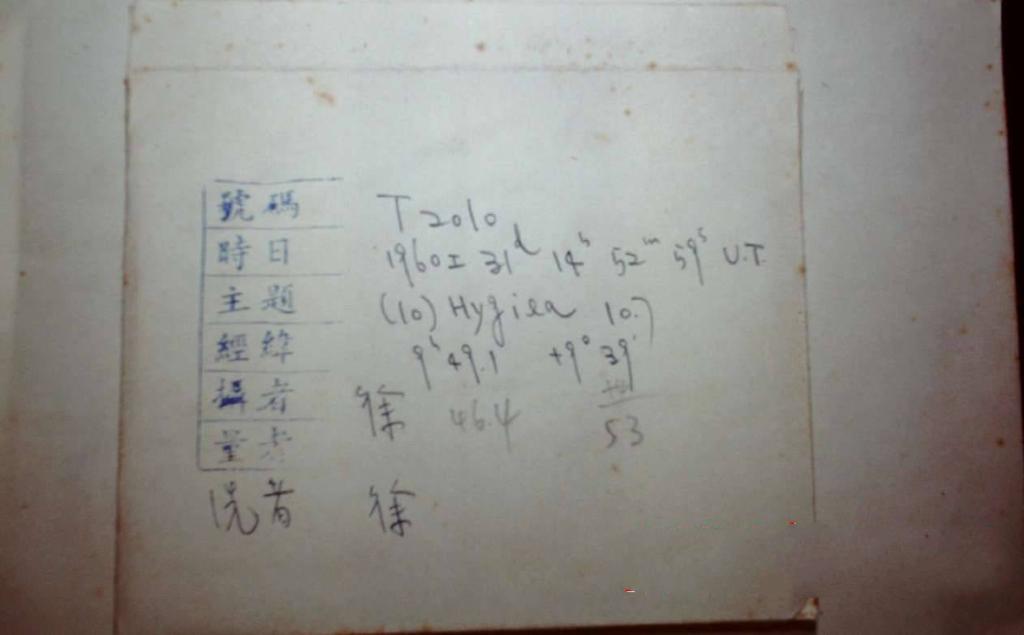 號碼 T 2010
時日 1960 I 31d 14h 52m 59s U.T.
主題 (10) Hygiea 10.7
經緯 9h 49.1 +9° 39'
攝者 徐 46.4 53
量者
洗者 徐